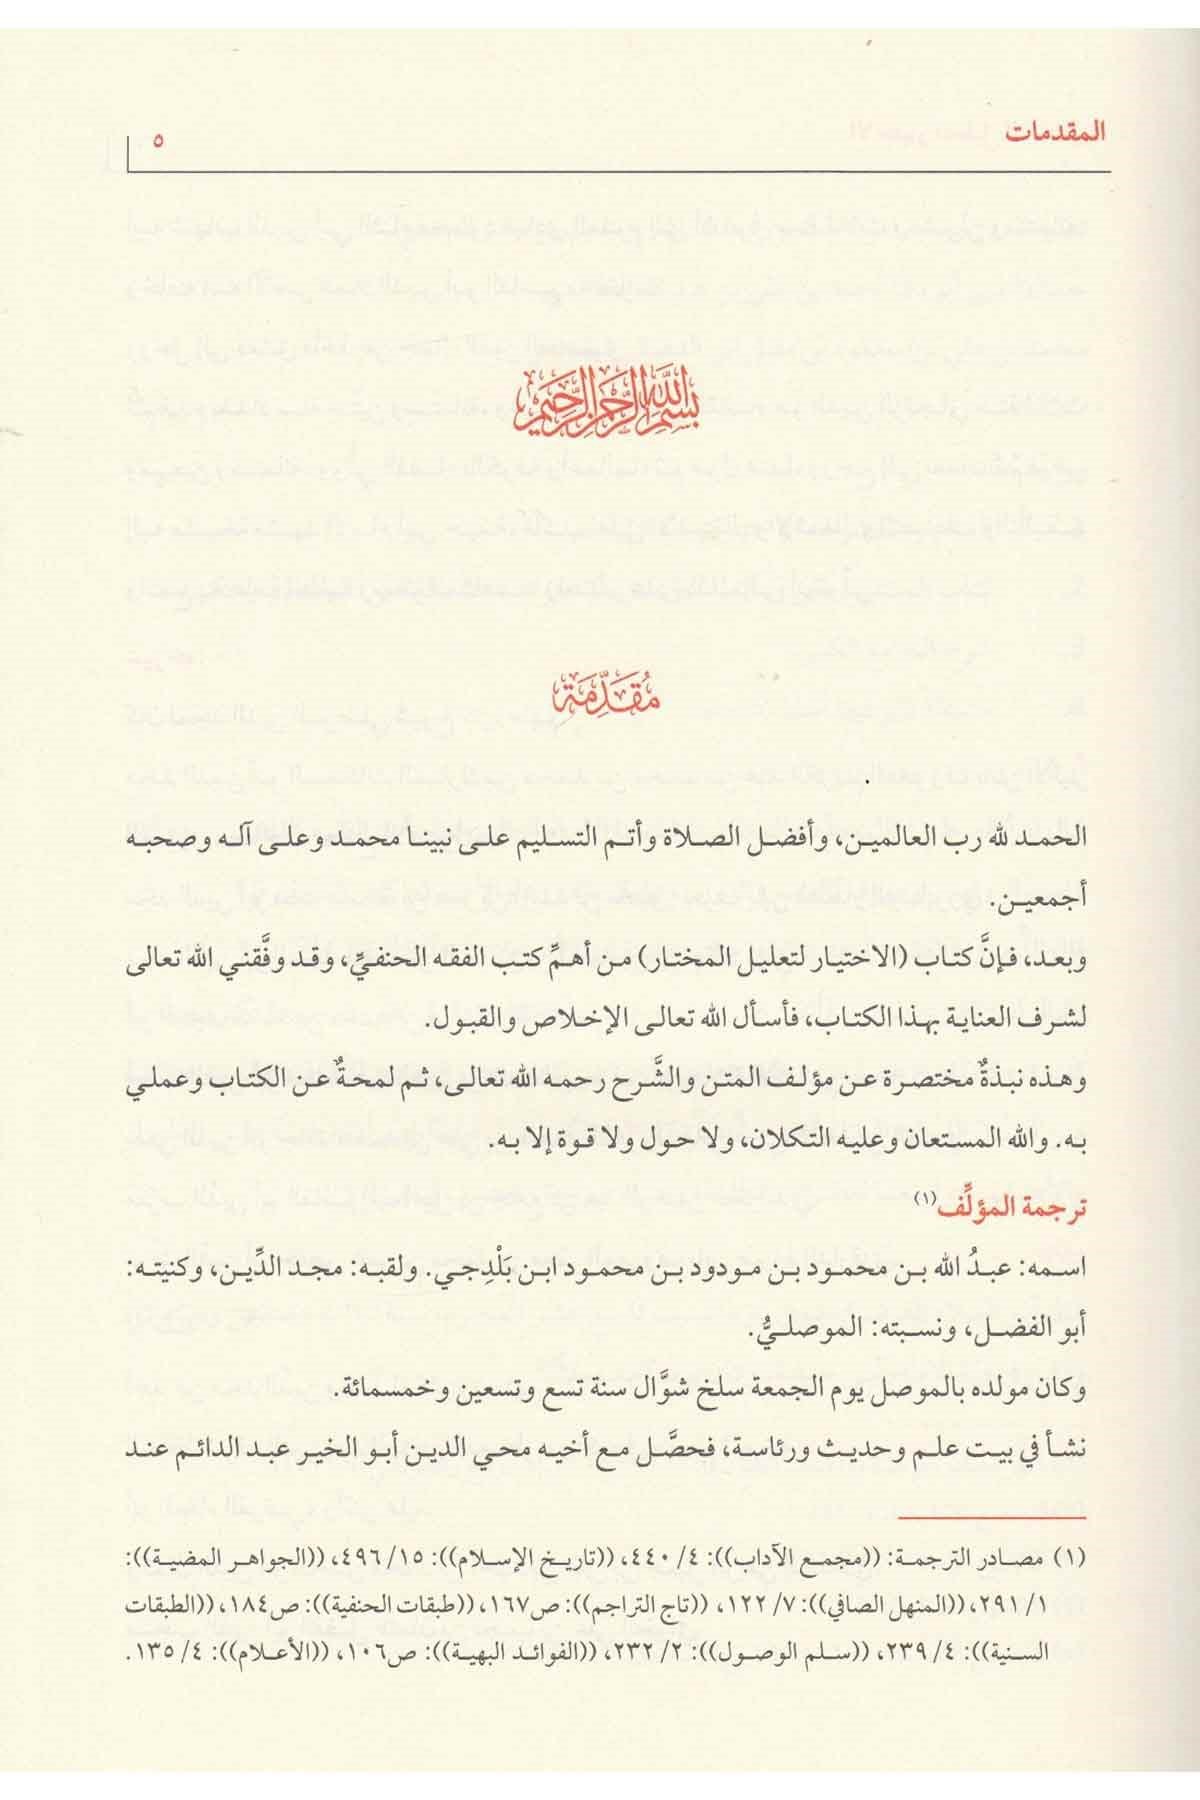 المقدمات
٥
بسم الله الرحمن الرحيم
مُقَدِّمَة
الحمد لله رب العالمين، وأفضل الصلاة وأتم التسليم على نبينا محمد وعلى آله وصحبه
أجمعين.
وبعد، فإنَّ كتاب (الاختيار لتعليل المختار) من أهمِّ كتب الفقه الحنفيِّ، وقد وفَّقني الله تعالى
لشرف العناية بهذا الكتاب، فأسأل الله تعالى الإخلاص والقبول.
وهذه نبذةٌ مختصرة عن مؤلف المتن والشَّرح رحمه الله تعالى، ثم لمحةٌ عن الكتاب وعملي
به. والله المستعان وعليه التكلان، ولا حول ولا قوة إلا به.
ترجمة المؤلِّف(١)
اسمه: عبدُ الله بن محمود بن مودود بن محمود ابن بَلْدِجي. ولقبه: مجد الدِّين، وكنيته:
أبو الفضل، ونسبته: الموصليُّ.
وكان مولده بالموصل يوم الجمعة سلخ شوَّال سنة تسع وتسعين وخمسمائة.
نشأ في بيت علم وحديث ورئاسة، فحصَّل مع أخيه محي الدين أبو الخير عبد الدائم عند
(١) مصادر الترجمة: ((مجمع الآداب)): ٤/ ٤٤٠، ((تاريخ الإسلام)): ١٥/ ٤٩٦، ((الجواهر المضية)):
١/ ٢٩١، ((المنهل الصافي)): ٧/ ١٢٢، ((تاج التراجم)): ص١٦٧، ((طبقات الحنفية)): ص١٨٤، ((الطبقات
السنية)): ٤/ ٢٣٩، ((سلم الوصول)): ٢/ ٢٣٢، ((الفوائد البهية)): ص١٠٦، ((الأعلام)): ٤/ ١٣٥.